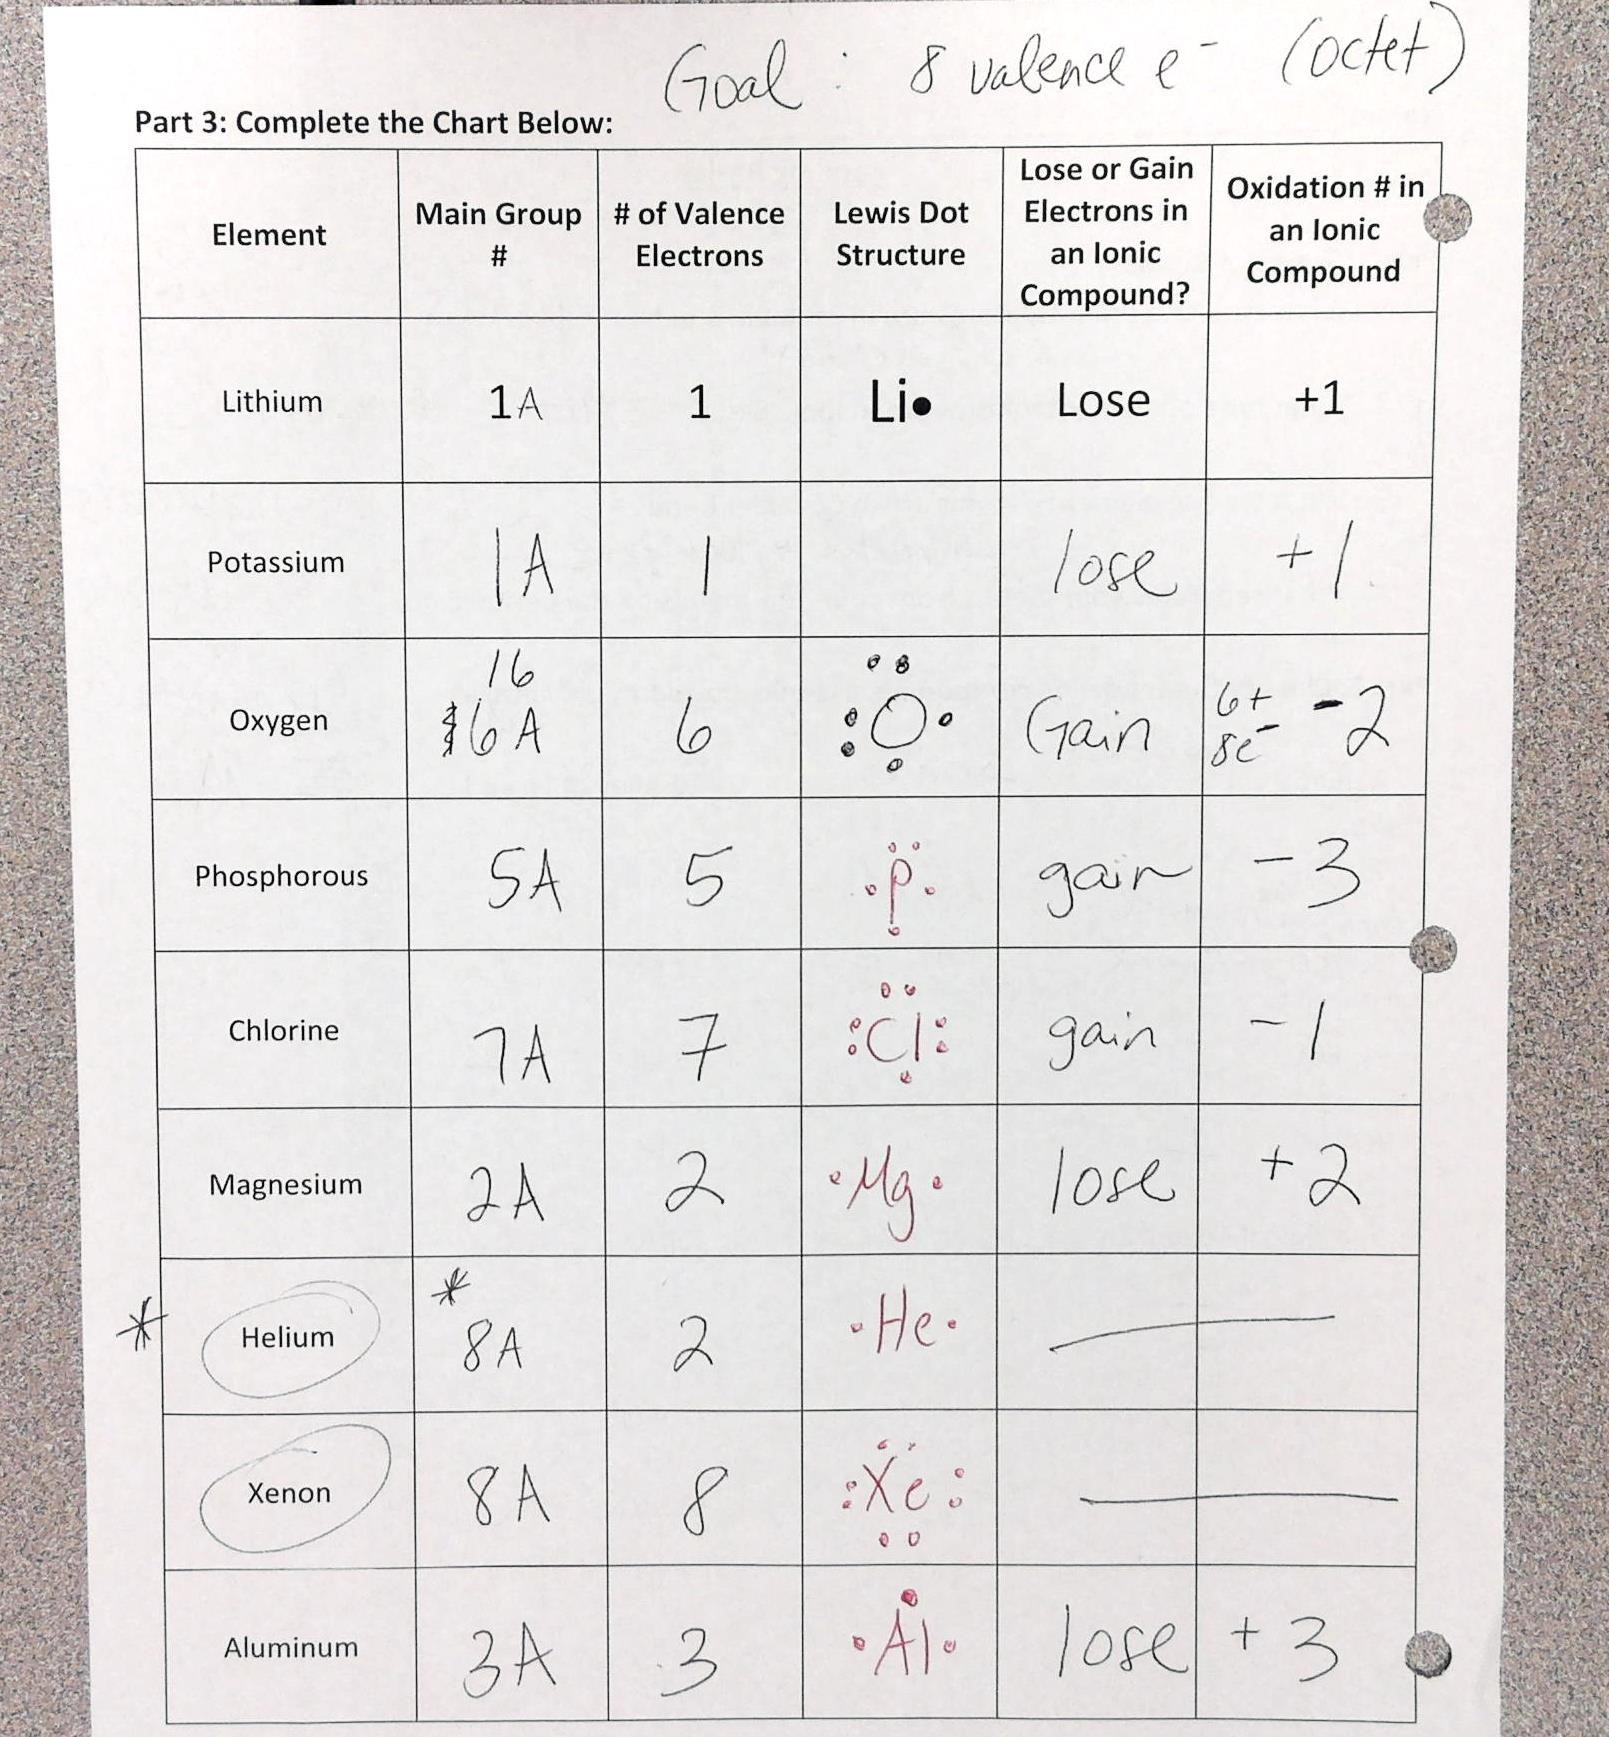 Goal : 8 valence e⁻ (octet)
Part 3: Complete the Chart Below:
Element | Main Group # | # of Valence Electrons | Lewis Dot Structure | Lose or Gain Electrons in an Ionic Compound? | Oxidation # in an Ionic Compound
Lithium | 1A | 1 | Li• | Lose | +1
Potassium | 1A | 1 | | lose | +1
Oxygen | 16 6A | 6 | O | Gain | 6+ 8e⁻ -2
Phosphorous | 5A | 5 | P | gain | -3
Chlorine | 7A | 7 | Cl | gain | -1
Magnesium | 2A | 2 | •Mg• | lose | +2
* Helium | * 8A | 2 | •He• | —
Xenon | 8A | 8 | Xe | —
Aluminum | 3A | 3 | Al | lose | +3